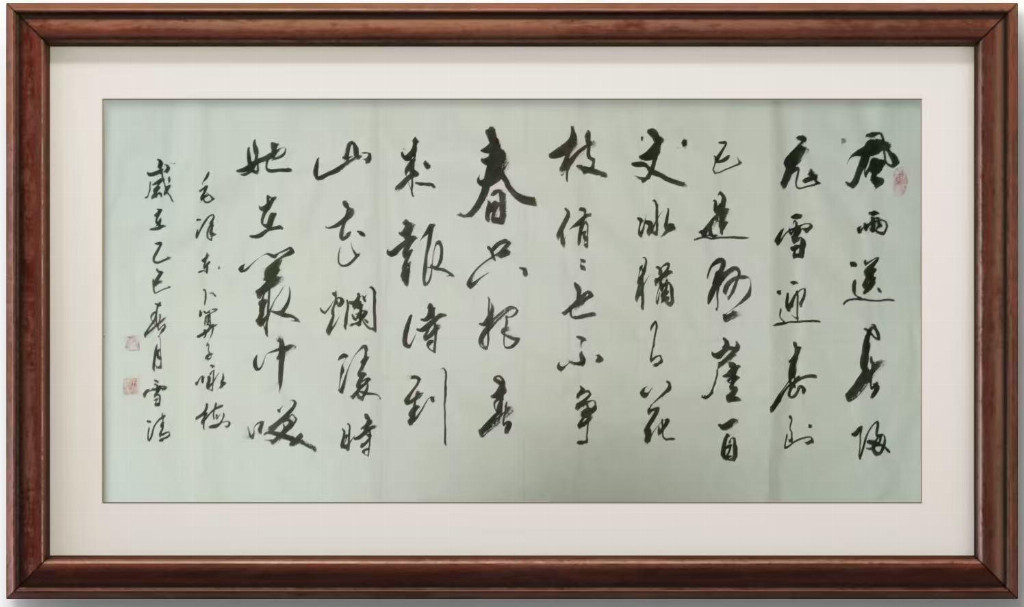 風雨送春归
飛雪迎春到
已是懸崖百
丈冰猶有花
枝俏〻也不争
春只把春
来報待到
山花爛漫時
她在叢中笑
毛泽东卜算子咏梅
歲在乙巳春月雪清